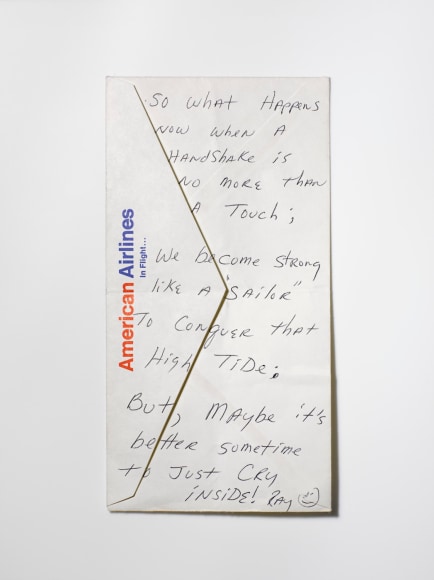 So what Happens
now when A
Handshake is
no more than
A Touch;
We become strong
like A "Sailor"
To Conquer that
High Tide;
But, Maybe it's
better sometime
to Just Cry
inside! Ray
American Airlines
In Flight...